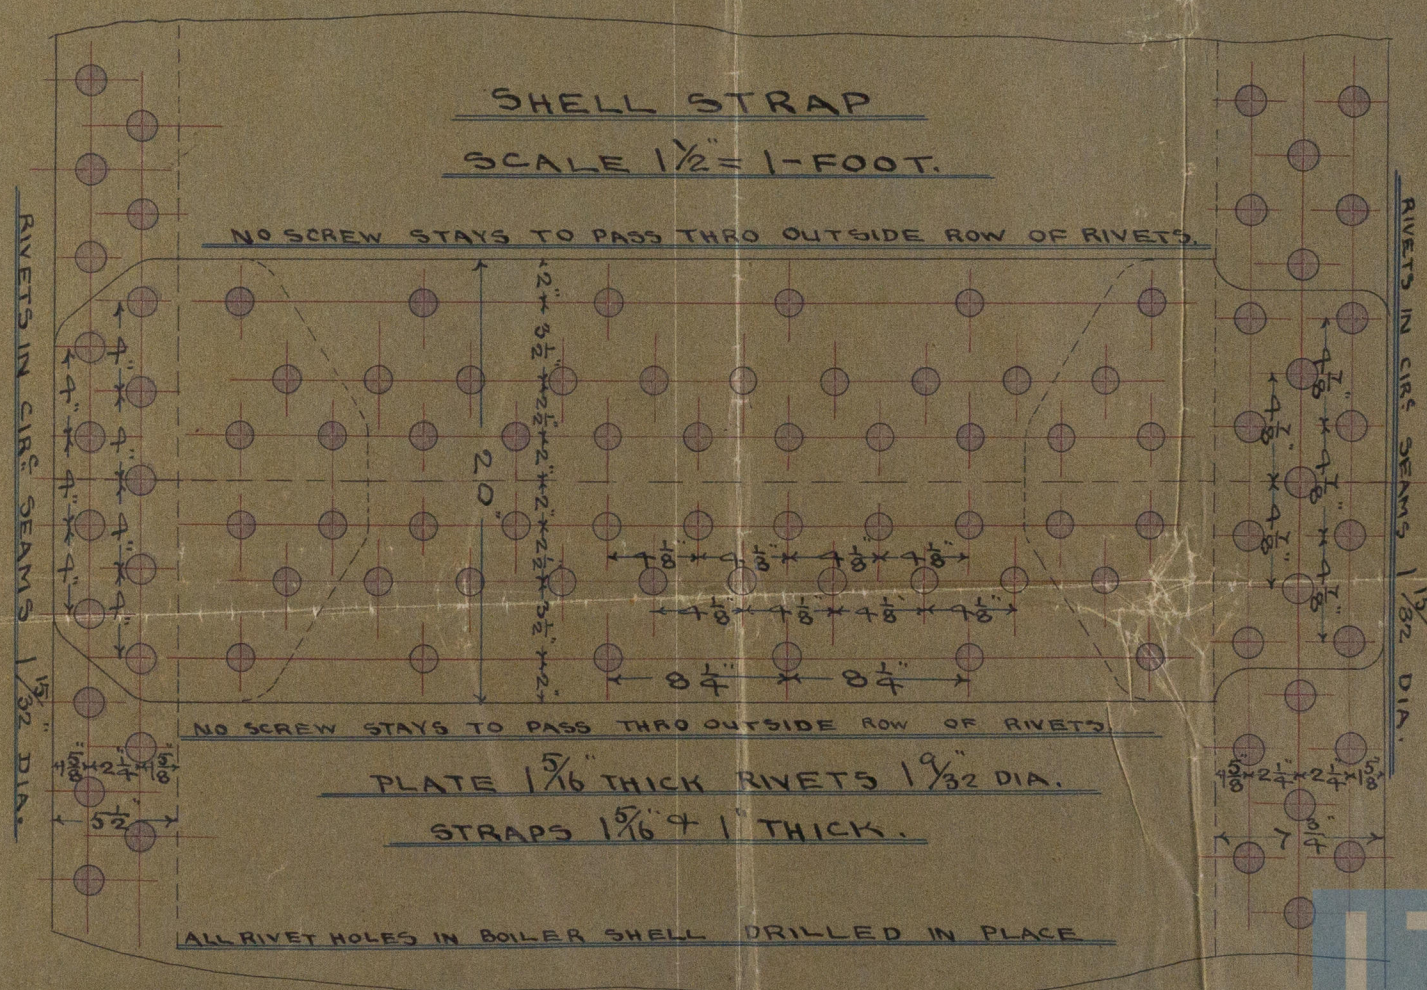 SHELL STRAP
SCALE 1 1/2" = 1-FOOT.
NO SCREW STAYS TO PASS THRO OUTSIDE ROW OF RIVETS.
RIVETS IN CIRC SEAMS 1 15/32" DIA.
RIVETS IN CIRC SEAMS 1 15/32 DIA.
4" 4" 4"
4" 4" 4" 4"
20"
2" 3 1/2" 2 1/2" 2" 2" 2 1/2" 3 1/2" 2"
4 7/8" 4 7/8"
4 7/8" 4 7/8" 4 7/8"
4 1/8" 4 1/8" 4 1/8" 4 1/8"
4 1/8" 4 1/8" 4 1/8" 4 1/8"
8 1/4" 8 1/4"
NO SCREW STAYS TO PASS THRO OUTSIDE ROW OF RIVETS
1 5/8" 2 1/4" 1 5/8"
5 1/2"
PLATE 1 5/16" THICK RIVETS 1 9/32" DIA.
1 5/8" 2 1/4" 2 1/4" 1 5/8"
7 3/4"
STRAPS 1 5/16" & 1" THICK.
ALL RIVET HOLES IN BOILER SHELL DRILLED IN PLACE